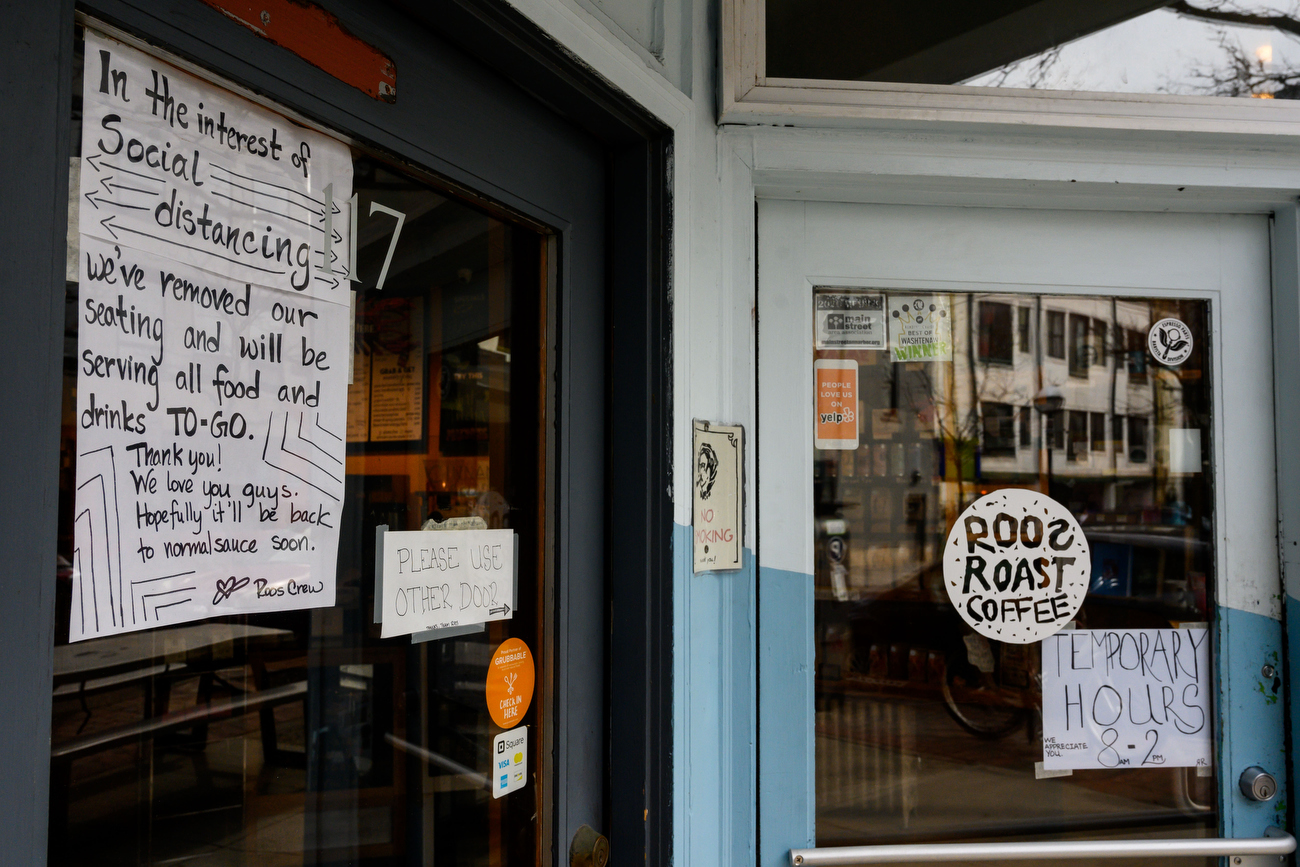 In the interest of
Social
distancing
we've removed our
seating and will be
serving all food and
drinks TO-GO.
Thank you!
We love you guys.
Hopefully it'll be back
to normalsauce soon.
Roos Crew
117
PLEASE USE
OTHER DOOR
GRUBBABLE
CHECK IN
HERE
Square
VISA
NO
MOKING
main
street
BEST OF
WASHTENAW
WINNER
PEOPLE
LOVE US
ON
yelp
ROOS
ROAST
COFFEE
TEMPORARY
HOURS
8AM-2PM
WE
APPRECIATE
YOU.
RR